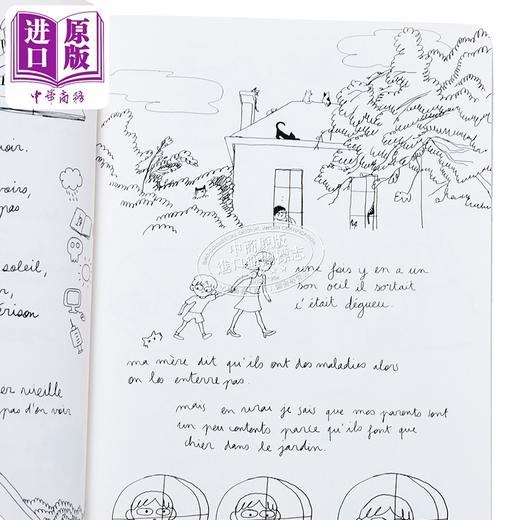 进口
原版
中华商务
oir.
oirs,
pas
soleil,
r,
érison
er vieille
pas d'en voir
中商原版
une fois y en a un
son oeil il sortait
c'était dégueu.
ma mère dit qu'ils ont des maladies alors
on les enterre pas.
mais en vrai je sais que mes parents sont
un peu contents parce qu'ils font que
chier dans le jardin.